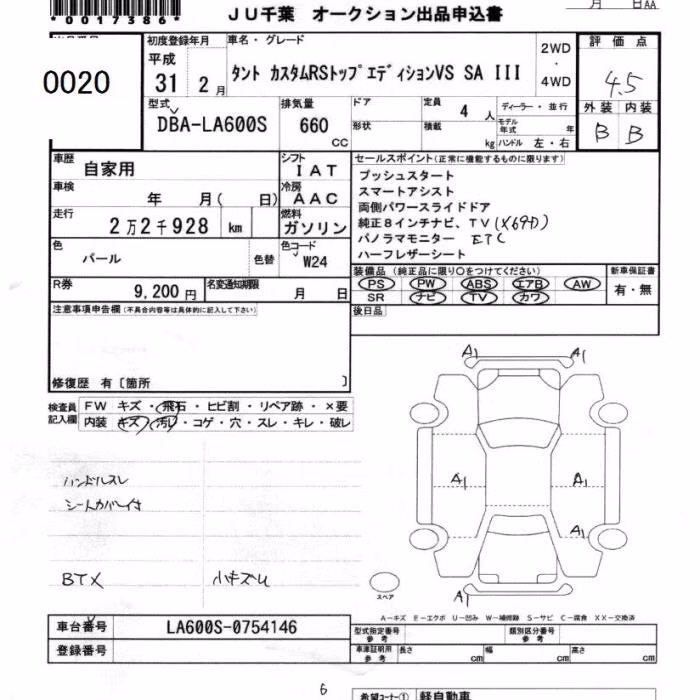 *0017386*
ＪＵ千葉 オークション出品申込書
月 日AA
0020
初度登録年月
平成
31 2月
車名・グレード
タント カスタムRSトップエディションVS SA III
2WD
・
4WD
評価点
4.5
外装 内装
B B
型式
DBA-LA600S
排気量
660
CC
ドア
形状
定員 4 人
積載 kg
ディーラー・並行
モデル年式 年
ハンドル 左・右
車歴
自家用
シフト
IAT
セールスポイント(正常に機能するものに限ります)
プッシュスタート
スマートアシスト
両側パワースライドドア
純正8インチナビ、TV(X69D)
パノラマモニター ETC
ハーフレザーシート
車検
年 月( 日)
冷房
AAC
走行
2万2千928 km
燃料
ガソリン
色
パール
色替
色コード
W24
装備品(純正品に限り○をつけてください)
PS PW ABS エアB AW
SR ナビ TV カワ
新車保証書
有・無
R券
9,200円
名変通知期限
月 日
後日品
注意事項申告欄(不具合内容等は具体的に記入して下さい)
修復歴 有〔箇所 〕
検査員記入欄
FW キズ・飛石・ヒビ割・リペア跡・×要
内装 キズ・汚レ・コゲ・穴・スレ・キレ・破レ
ハンドルスレ
シートカバー付
BTX 小キズU
A1 A1
A1 A1
A1
A1
スペア
A－キズ E－エクボ U－凹み W－補修跡 S－サビ C－腐食 XX－交換済
車台番号 LA600S-0754146
登録番号
型式指定番号 参考
類別区分番号 参考
車庫証明用 参考 長さ cm 幅 cm 高さ cm
6
希望コーナー① 軽自動車